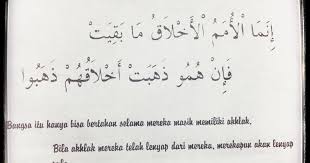 إِنَّمَا الْأُمَمُ الْأَخْلَاقُ مَا بَقِيَتْ
فَإِنْ هُمُو ذَهَبَتْ أَخْلَاقُهُمْ ذَهَبُوا
Bangsa itu hanya bisa bertahan selama mereka masih memiliki akhlak.
Bila akhlak mereka telah lenyap dari mereka, merekapun akan lenyap